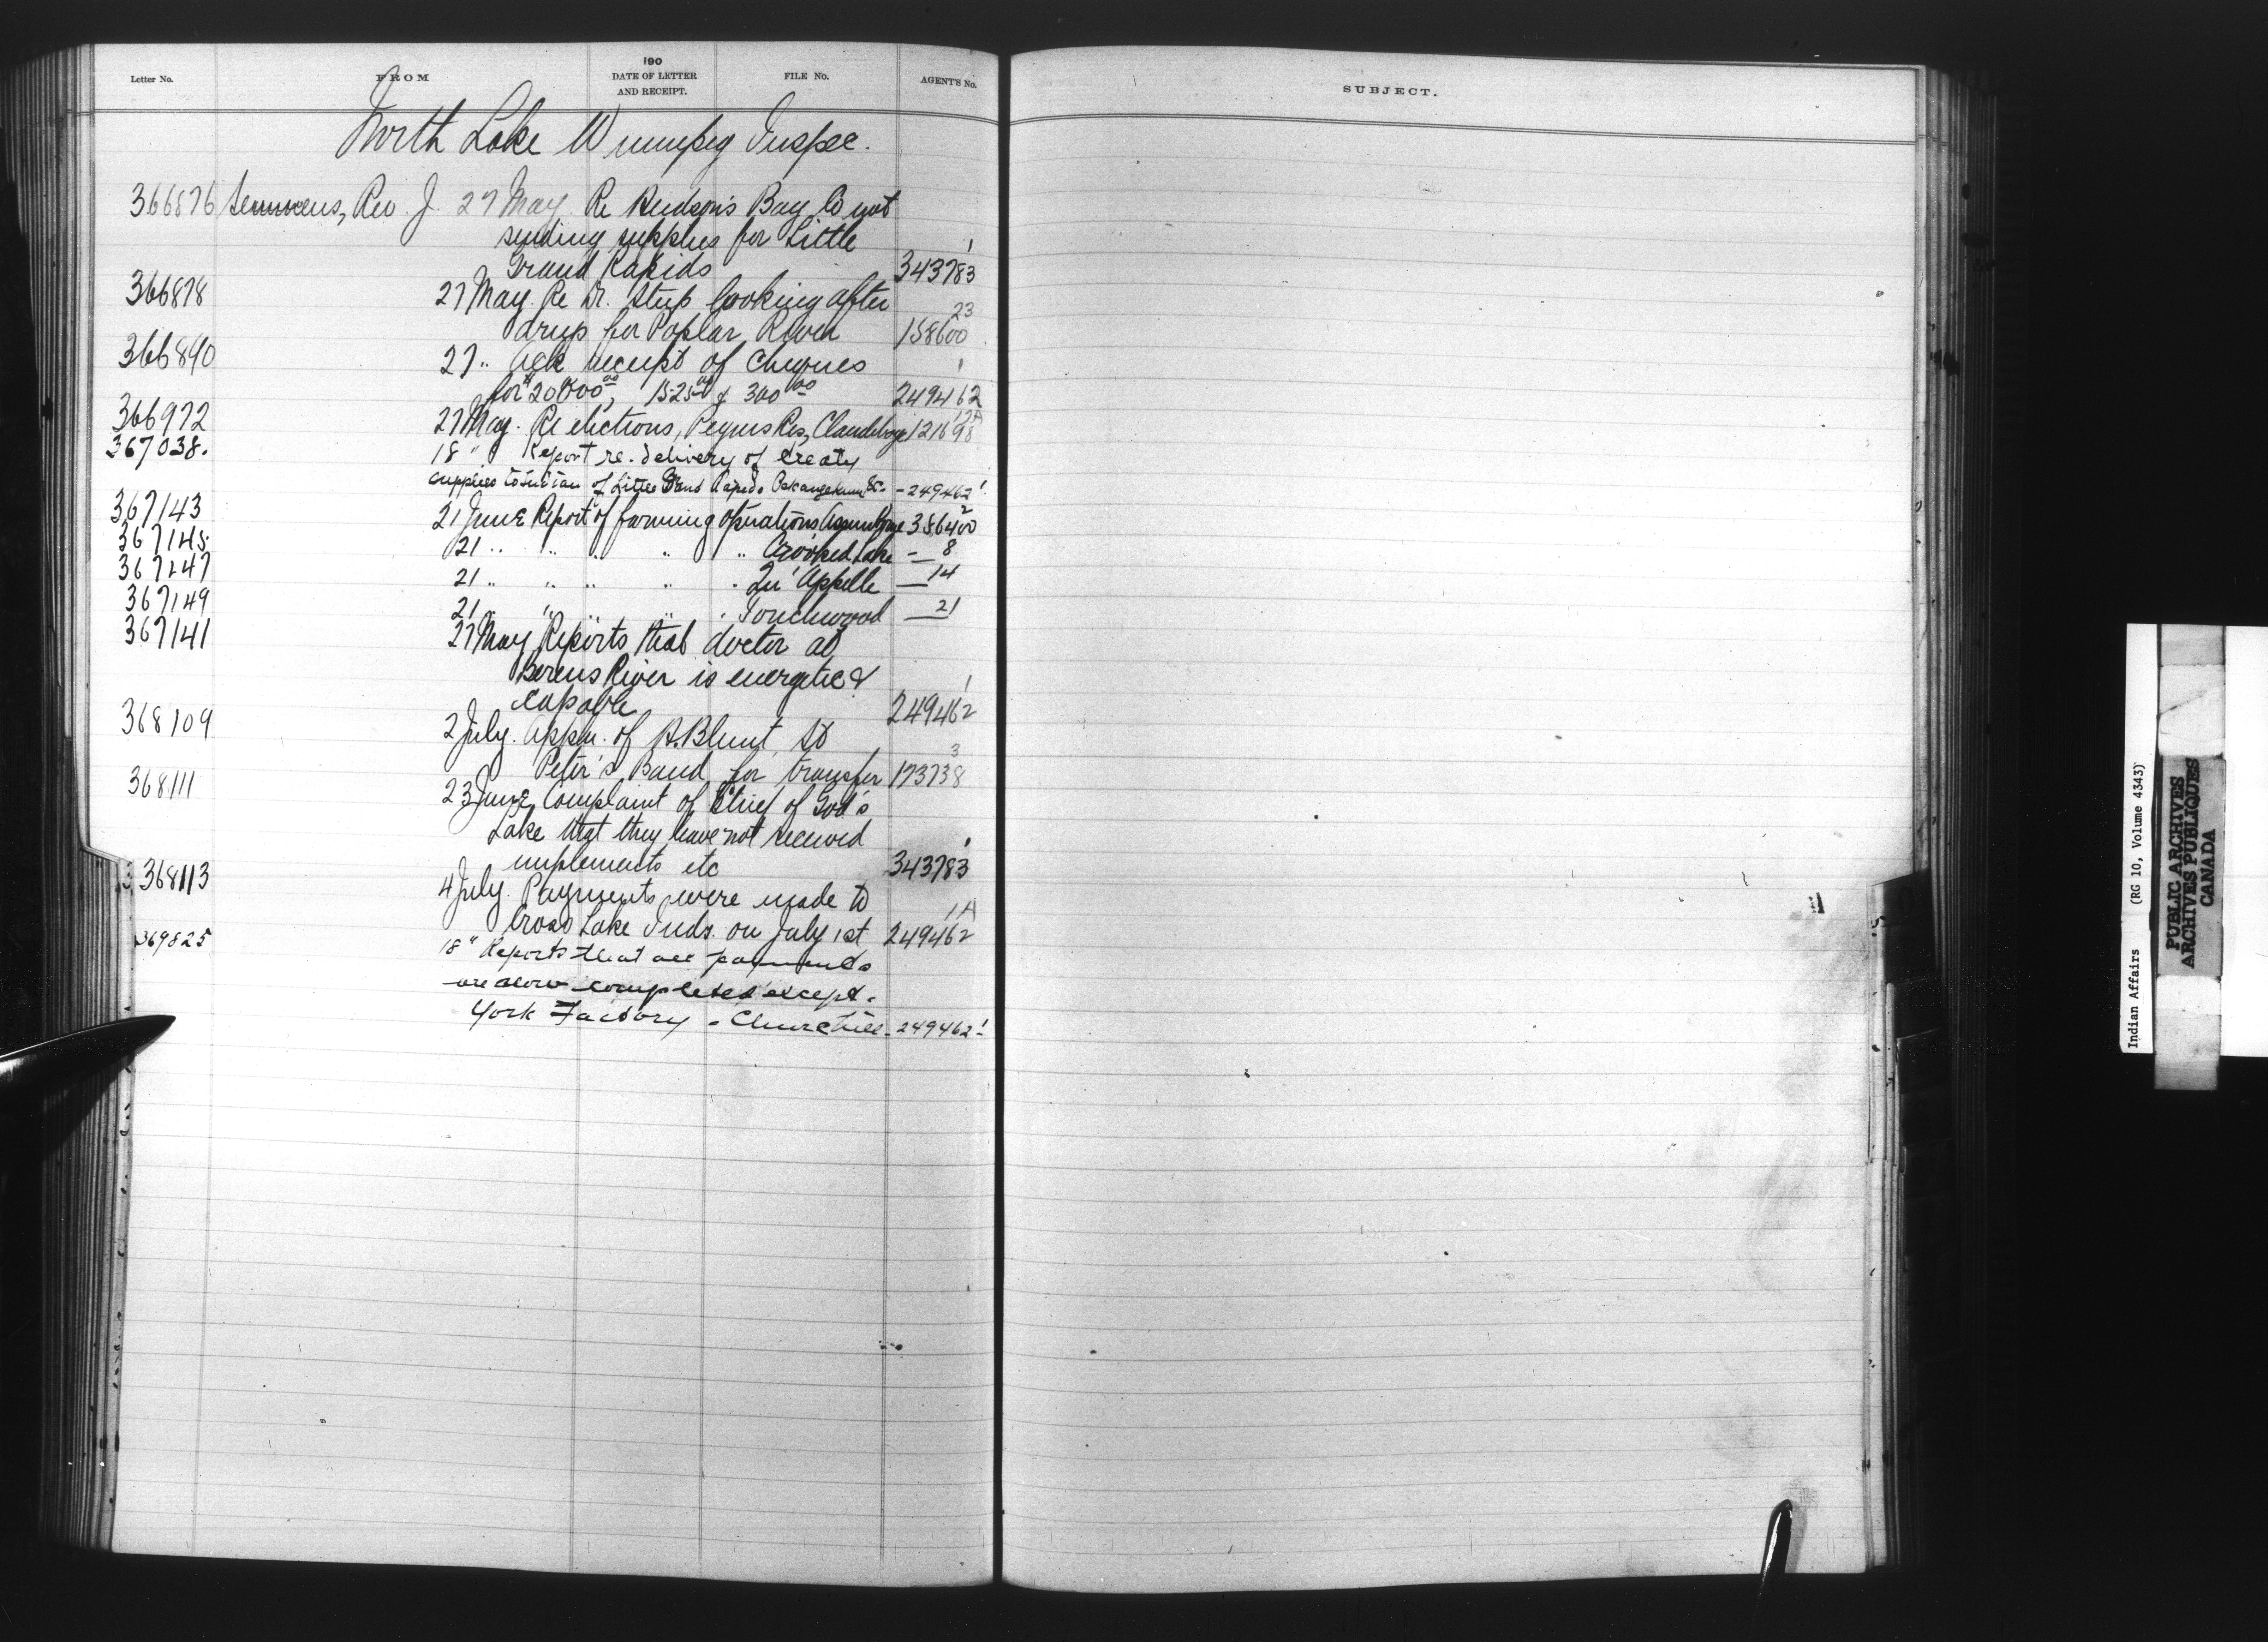 Letter No. FROM 190 DATE OF LETTER AND RECEIPT. FILE No. AGENT'S No.
North Lake Winnipeg Inspec.
366876 Semmens, Rev. J. 27 May Re Hudson's Bay Co not
sending supplies for Little
Grand Rapids 343783 1
366878 27 May. Re Dr. Steep looking after
drugs for Poplar River 158600 23
366890 27 " Ack receipt of cheques
for $20000.00, 1525.00 & 300.00 249462 1
366972 27 May. Re elections, Peguis Res, Clandeboye 121698 17A
367038. 18 " Report re. delivery of treaty
supplies to Indian of Little Grand Rapids Pekangekum &c. - 249462 1
367143 21 June Report of farming operations Assiniboine 386400 2
367145. 21 " " " " " Crooked Lake — 8
367147 21 " " " " " Qu'Appelle — 14
367149 21 " " " " " Touchwood — 21
367141 27 May Reports that doctor at
Berens River is energetic &
capable 249462 1
368109 2 July. Appn. of H. Blunt St
Peter's Band for transfer 173738 3
368111 23 June Complaint of Chief of God's
Lake that they have not received
implements etc 343783 1
368113 4 July. Payments were made to
Cross Lake Inds. on July 1st 249462 1A
369825 18 " Reports that all payments
are now completed except.
York Factory - Churchill - 249462 1
SUBJECT.
Indian Affairs (RG 10, Volume 4343)
PUBLIC ARCHIVES
ARCHIVES PUBLIQUES
CANADA